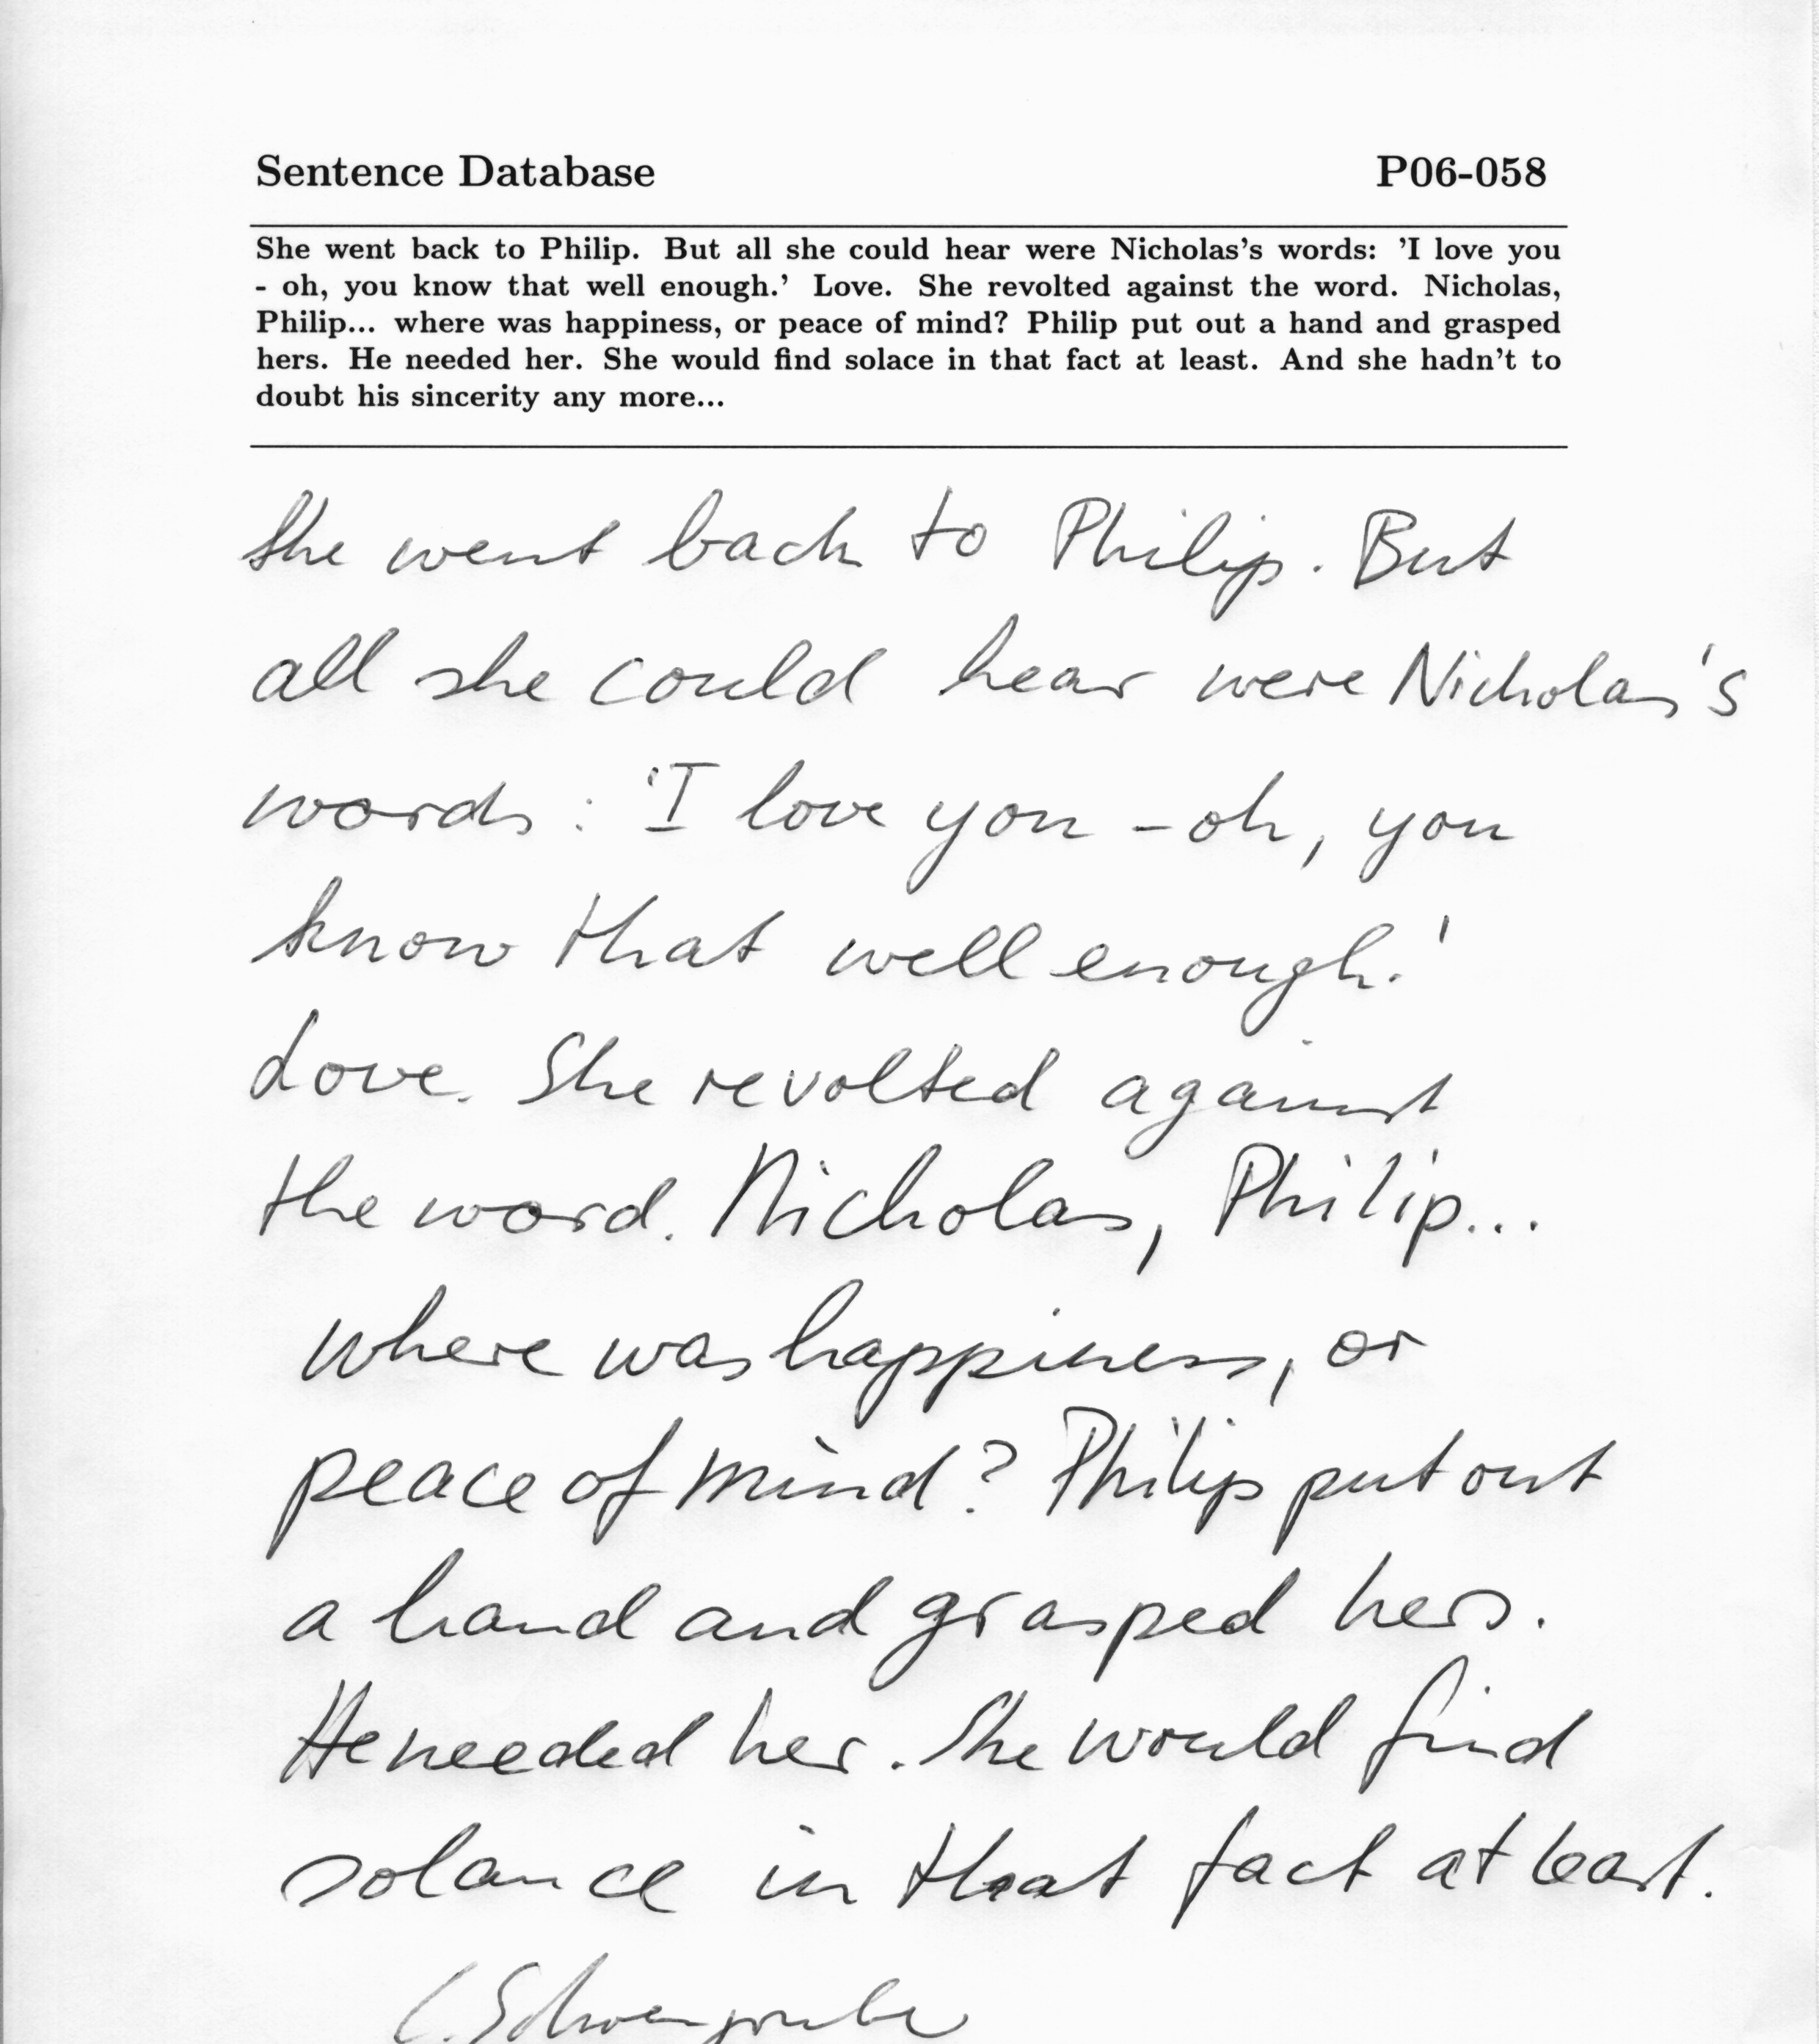 Sentence Database P06-058
She went back to Philip. But all she could hear were Nicholas's words: 'I love you
- oh, you know that well enough.' Love. She revolted against the word. Nicholas,
Philip... where was happiness, or peace of mind? Philip put out a hand and grasped
hers. He needed her. She would find solace in that fact at least. And she hadn't to
doubt his sincerity any more...
She went back to Philip. But
all she could hear were Nicholas's
words: 'I love you - oh, you
know that well enough.'
Love. She revolted against
the word. Nicholas, Philip...
where was happiness, or
peace of mind? Philip put out
a hand and grasped hers.
He needed her. She would find
solance in that fact at least.